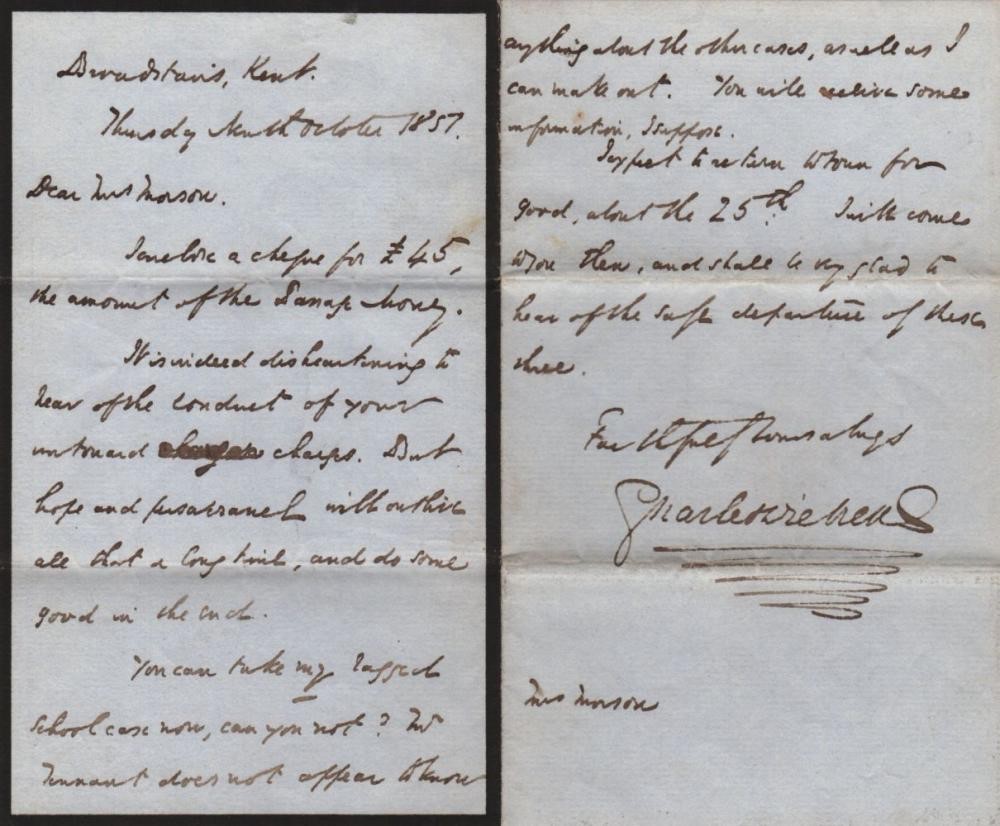 Broadstairs, Kent.
Thursday Ninth October 1851.
Dear Mrs Morson.
I enclose a cheque for £45,
the amount of the Passage Money.
It is indeed disheartening to
hear of the conduct of your
untoward charges. But
hope and perseverance will outlive
all that a long time, and do some
good in the end.
You can take my ragged
school case now, can you not? Mr
Tennant does not appear to know
anything about the other cases, as well as I
can make out. You will receive some
information, I suppose.
I expect to return to town for
good, about the 25th. I will come
to you then, and shall be very glad to
hear of the safe departure of these
three.
Faithfully Yours always
Charles Dickens
Mrs Morson